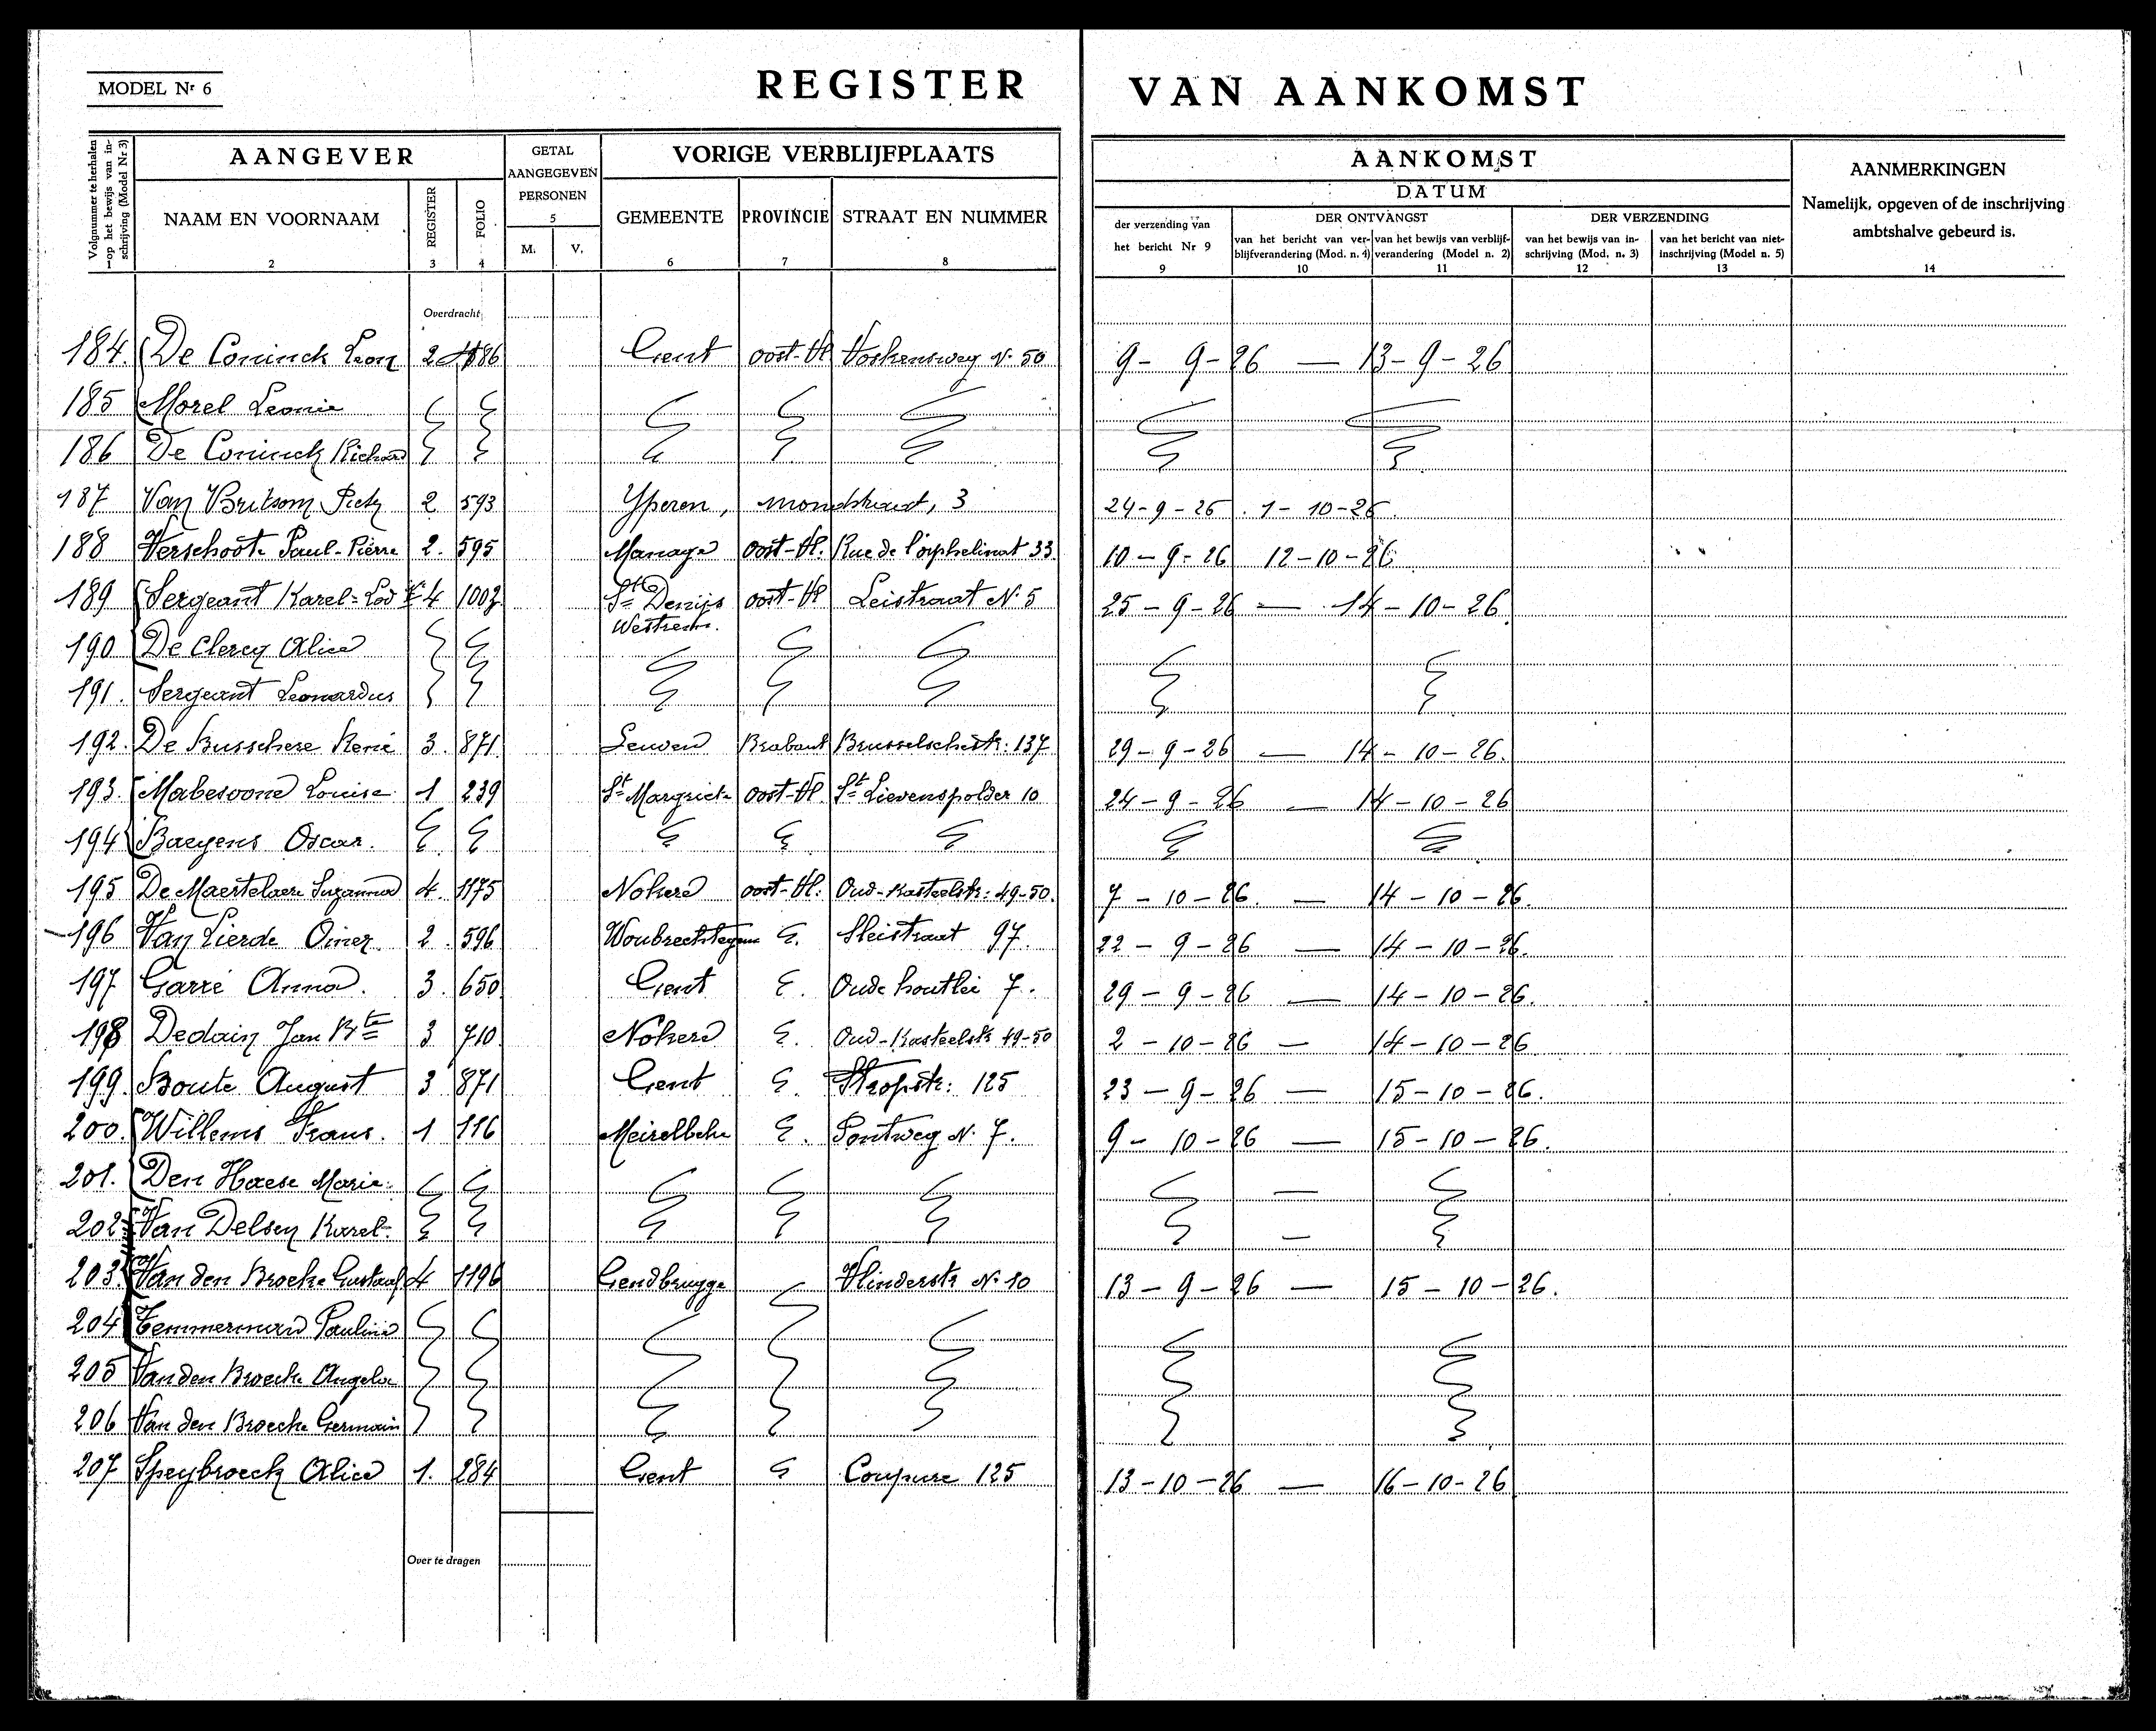 MODEL Nr 6
REGISTER VAN AANKOMST
Volgnummer te herhalen op het bewijs van inschrijving (Model Nr 3)
1
AANGEVER
NAAM EN VOORNAAM
2
REGISTER
3
FOLIO
4
GETAL AANGEGEVEN PERSONEN
5
M. V.
VORIGE VERBLIJFPLAATS
GEMEENTE
6
PROVINCIE
7
STRAAT EN NUMMER
8
AANKOMST
DATUM
der verzending van het bericht Nr 9
9
DER ONTVANGST
van het bericht van verblijfverandering (Mod. n. 4)
10
van het bewijs van verblijfverandering (Model n. 2)
11
DER VERZENDING
van het bewijs van inschrijving (Mod. n. 3)
12
van het bericht van niet-inschrijving (Model n. 5)
13
AANMERKINGEN
Namelijk, opgeven of de inschrijving ambtshalve gebeurd is.
14
Overdracht
184. De Coninck Leon 2 Gent Oost-Vl Voskensweg N. 50 9-9-26 — 13-9-26
185 Morel Leonie
186 De Coninck Richard
187 Van Britsom Pieter 2 593 Yperen, mondstraat, 3 24-9-26 1-10-26
188 Verschoote Paul-Pierre 2. 595 Manage Oost-Vl. Rue de l'orphelinat 33 10-9-26 12-10-26
189 Sergeant Karel-Lod 4 1007 St Denijs Westrem. Oost-Vl Leistraat N. 5 25-9-26 — 14-10-26
190 De Clercq Alice
191. Sergeant Leonardus
192. De Busschere René 3. 871 Leuven Brabant Brusselschestr: 137 29-9-26 — 14-10-26.
193. Mabesoone Louise 1 239 St Margriete Oost-Vl. St Lievenspolder 10 24-9-26 — 14-10-26
194 Baeyens Oscar.
195 De Maertelaere Suzanna 4. 1175 Nokere Oost-Vl. Oud-Kasteelstr: 49-50. 7-10-26. — 14-10-26.
196 Van Lierde Omer 2. 596 Woubrechtegem Sleistraat 97. 22-9-26 — 14-10-26.
197 Garré Anna. 3. 650 Gent Oude houtlei 7. 29-9-26 — 14-10-26.
198 Dedain Jan Bte 3 710 Nokere Oud-Kasteelstr 49-50 2-10-26 — 14-10-26
199. Boute August 3 871 Gent Stropstr: 125 23-9-26 — 15-10-26.
200. Willems Frans. 1 116 Meirelbeke Pontweg N. 7. 9-10-26 — 15-10-26.
201. Den Haese Marie.
202 Van Delsen Karel.
203. Van den Broeke Gustaaf 4 1196 Gendbrugge Vlinderstr N. 10 13-9-26 — 15-10-26.
204 Temmerman Paulina
205 Van den Broecke Angela
206 Van den Broecke Germain
207 Speybroeck Alice 1. 284 Gent Coupure 125 13-10-26 — 16-10-26
Over te dragen